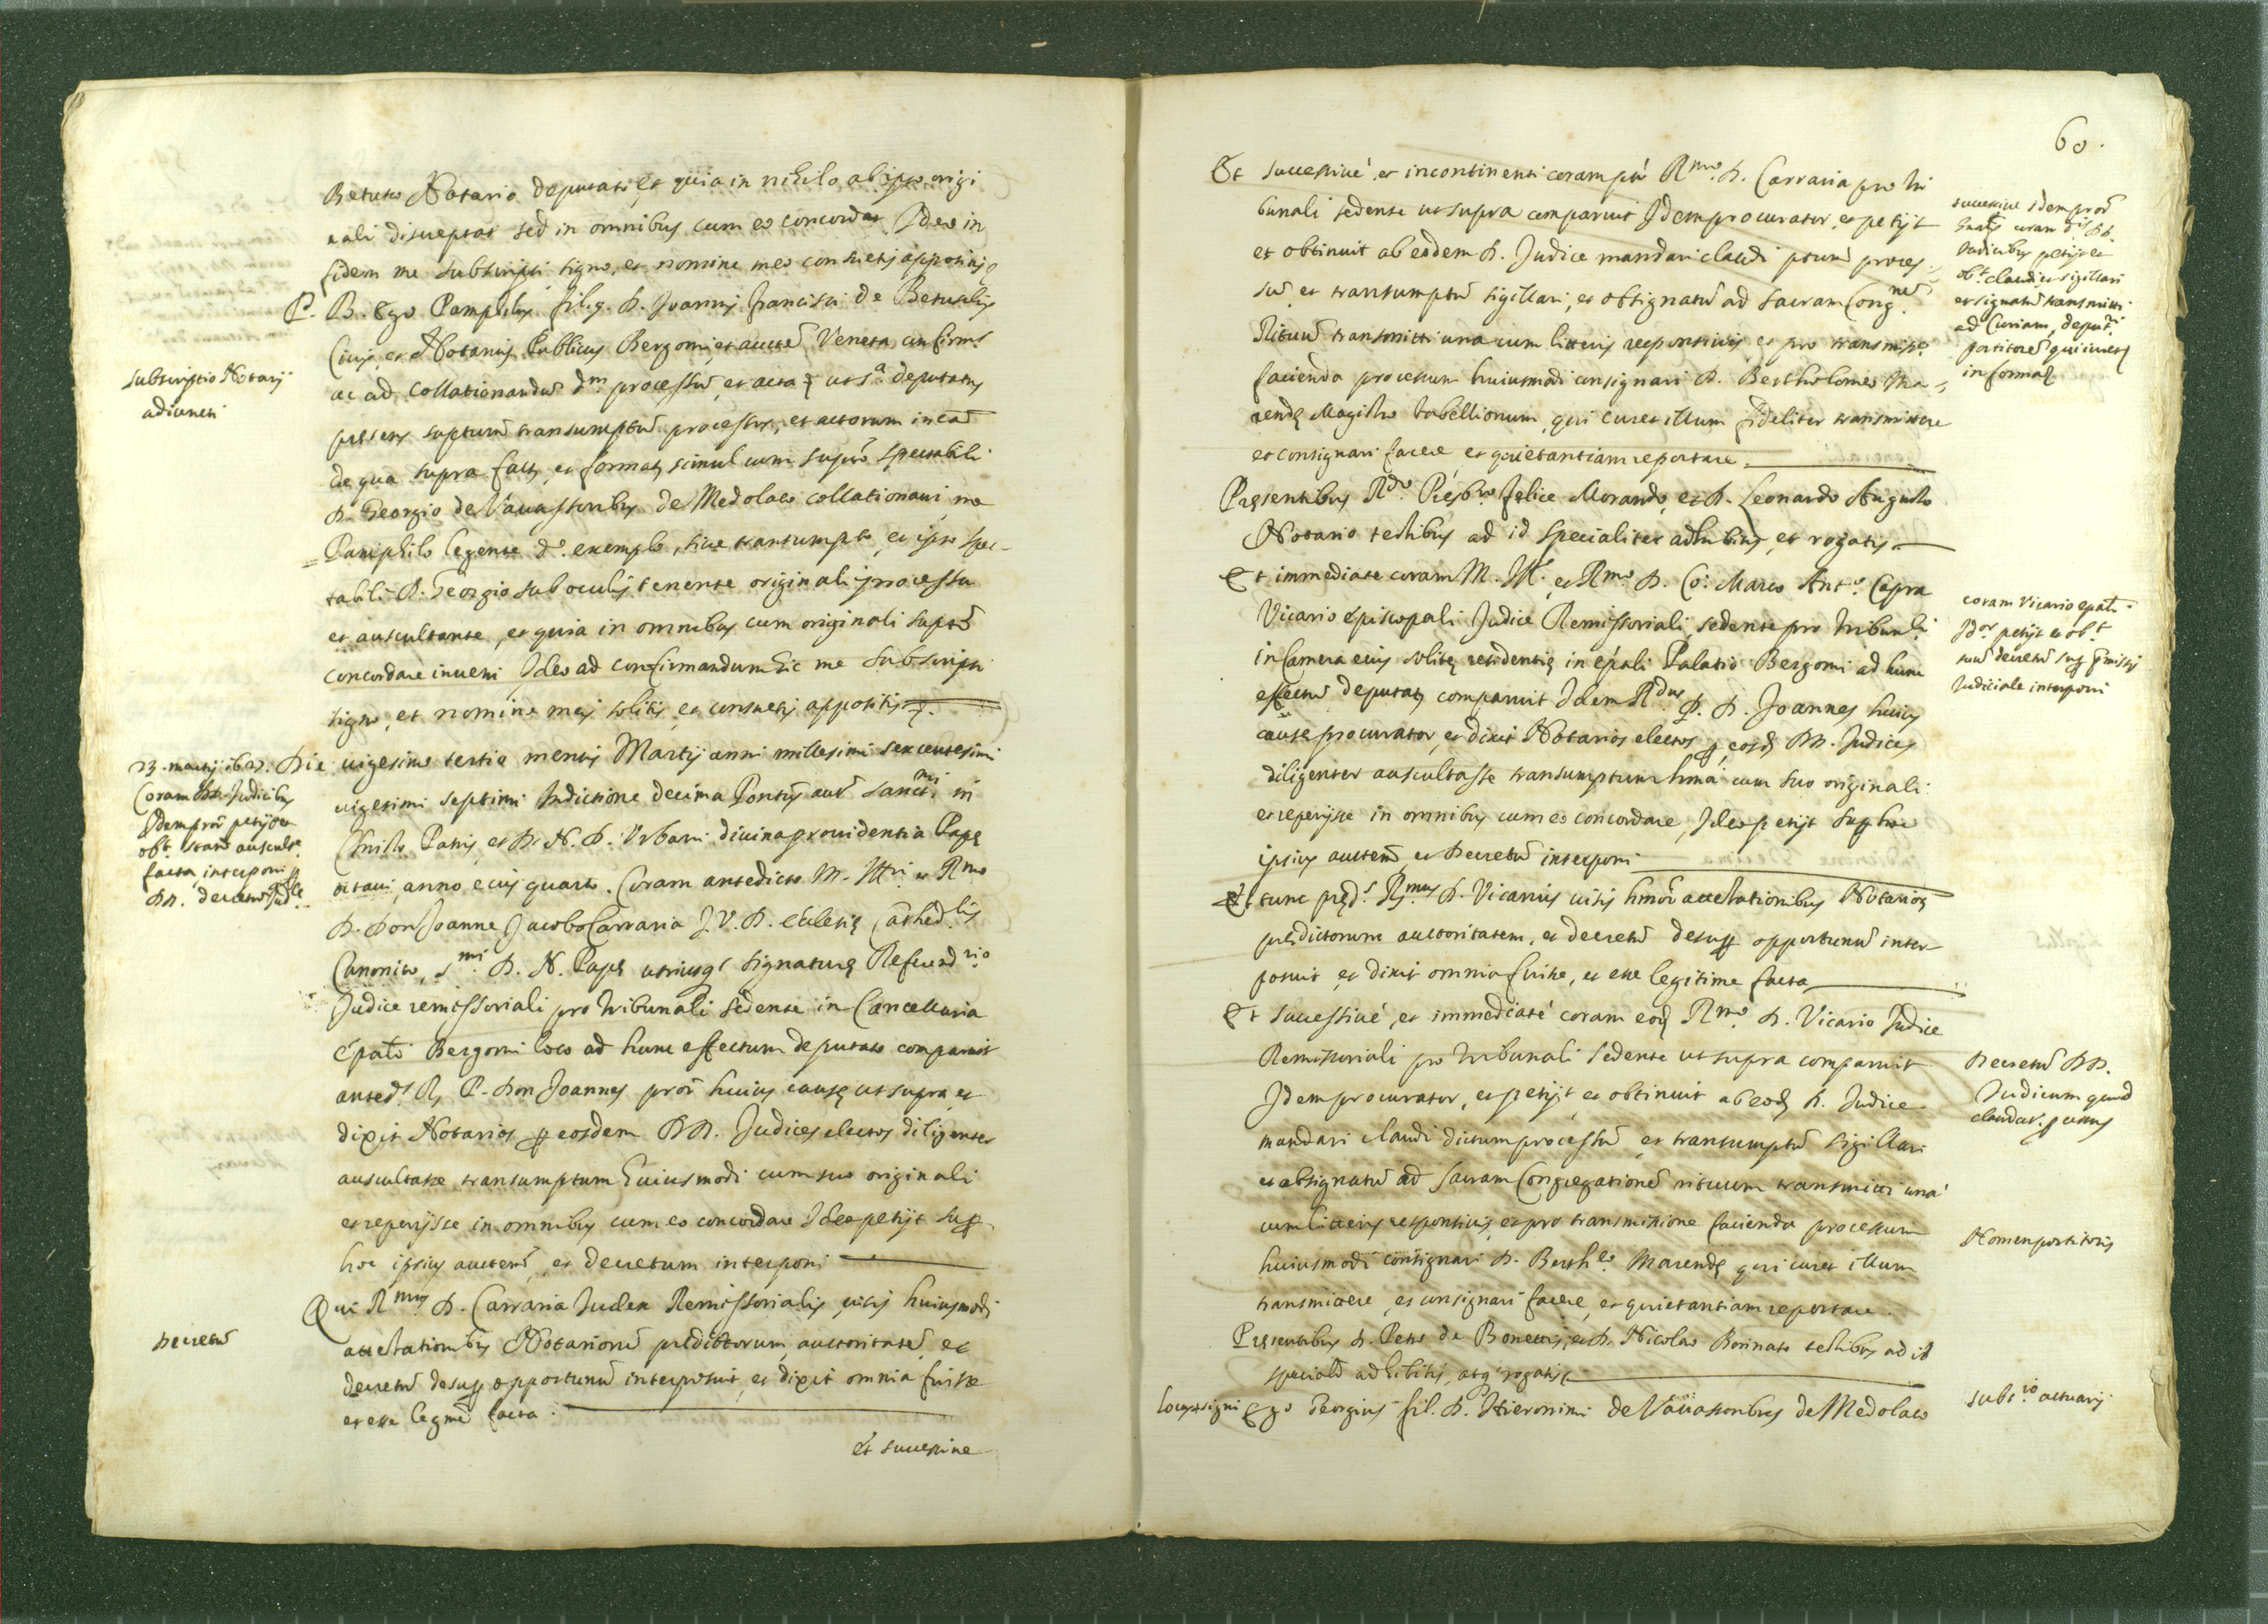 Betulo Notario deputati, et quia in nihilo ab ipso origi
nali discrepat sed in omnibus cum eo concordat Ideo in
fidem me subscripsi signo, et nomine meo consuetis appositis
P. B. Ego Pamphilus fil. q. D. Joannis Francisci de Betulis
Civis, et Notarius Publicus Bergomi et auctē Veneta confirms
ac ad collationandū dm processū, et acta ut sa deputatus
subscriptio Notarij
adiuncti
presens suptum transumptū processus, et actorum in cā
de qua supra fact, et format simul cum supto spectabili
D. Georgio de Vavassoribus de Medolaco collationavi me
Pamphilo legente do exemplo, sive transumpto, et ipso spec-
tabili D. Georgio sub oculis tenente originali processu
et auscultante, et quia in omnibus cum originali supto
concordare inveni Ideo ad confirmandum hic me subscripsi
signo, et nomine meis solitis, et consuetis appositis
23. martij 1627.
Coram DD. Judicibus
Idem pror petijt et
obt. stante auscultne
facta, interponi p
DD. decretū Judle
Die vigesimo tertio mensis Martij anni millesimi sexcentesimi
vigesimi septimi Indictione decima Pontus aut sancti.mi in
Christo Patris, et D. N. D. Urbani divina providentia Pape
octavi, anno eius quarto. Coram antedicto M. Ill.ri et Rmo
D. Don Joanne Jacobo Carrara J. V. D. ecclesię Cathedlis
Canonico, S.mi D. N. Papę utriusq; signaturę Referend.rio
Judice remissoriali pro tribunali sedente in Cancellaria
epali Bergomi loco ad hunc effectum deputato comparuit
anteds R. P. Don Joannes pror huius causę ut supra, et
dixit Notarios p eosdem DD. Judices electos diligenter
auscultasse transumptum huiusmodi cum suo originali
et reperijsse in omnibus cum eo concordare Ideo petijt sup
hoc ipsius auctem, et decretum interponi
Decretū
Qui Rmus D. Carrara Judex Remissorialis, visis huiusmodi
attestationibus Notariorū predictorum, auctoritatē, et
decretū desup opportunū interposuit, et dixit omnia fuisse
et esse legme facta.
et successive
60.
Et successivè, et incontinenti coram pto Rmo D. Carraria pro tri
bunali sedente ut supra comparuit Idem procurator, et petijt
et obtinuit ab eodem D. Judice mandari claudi ptum proces
sū, et transumptū sigillari, et obsignatū ad sacram Cong.nem
Rituū transmitti una cum litteris responsivis, et pro transmisne
facienda processum huiusmodi consignari D. Bertholomeo Ma-
rendę Magistro tabellionum, qui curet illum fideliter transmittere
et consignari facere et quietantiam reportare.
successive Idem pror
coram DD.
Judicibus petijt et
obt. claudi et sigillari
et signatū transmitti
ad Curiam, deput.ri
portitorē qui iuret
in forma
Presentibus Rdo Presbro Felice Morando, et D. Leonardo Augusto
Notario testibus ad id specialiter adhibitis, et rogatis
Et immediate coram M. Ill. et Rmo D. Co: Marco Anto. Capra
Vicario episcopali Judice Remissoriali, sedente pro tribunli
in Camera eius solitę residentię in epali Palatio Bergomi ad hunc
effectū deputat comparuit Idem Rdus P. D. Joannes huius
causę procurator, et dixit Notarios electos p eosd DD. Judices
diligenter auscultasse transumptum hmōi cum suo originali
et reperijsse in omnibus cum eo concordare, Ideo petijt sup hoc
ipsius auctem, et decretū interponi
coram Vicario epali
Idor petijt et obt
suū decretū sup pmissis
Judiciale interponi
Et tunc preds Rmus D. Vicarius visis hmōi attestationibus Notarior
predictorum auctoritatem, et decretū desup opportunū inter-
posuit, et dixit omnia fuisse, et esse legitime facta
Et successivè, et immediatè coram eod Rmo D. Vicario Judice
Remissoriali pro tribunali sedente ut supra comparuit
Idem procurator, et petijt, et obtinuit ab eod D. Judice
mandari claudi dictum processū, et transumptū sigillari
et obsignatū ad sacram Congregationē rituum transmitti unà
cum litteris responsivis, et pro transmissione facienda processum
huiusmodi consignari D. Berthlo. Marendę qui curet illum
transmittere, et consignari facere, et quietantiam reportare.
Decretū DD.
Judicum quod
claudat. p unus
Nomen portitoris
Presentibus D. Petro de Bonettis, et D. Nicolao Bonnato testibus ad id
specialr adhibitis, atq; rogatis
Locus signi Ego Georgius fil. D. Hieronimi de Vavassoribus de Medolaco
subs.io actuarij